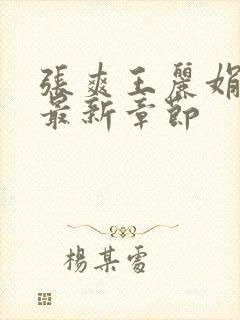 張爽王麗娟
最新章節
楊某雷